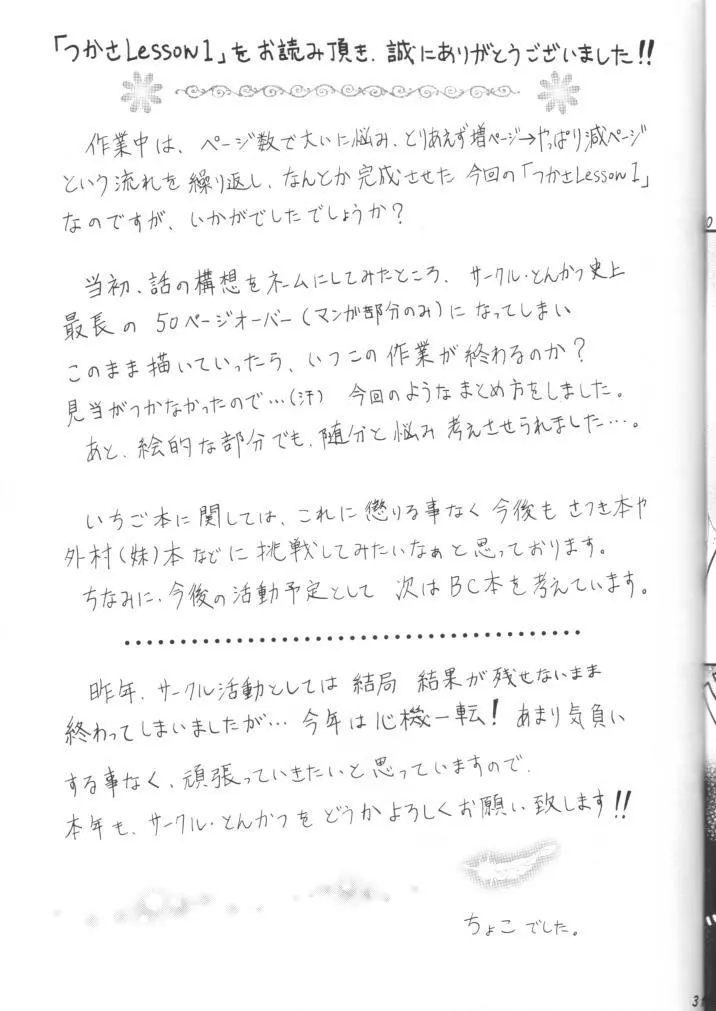 「つかさLesson1」をお読み頂き、誠にありがとうございました!!
作業中は、ページ数で大いに悩み、とりあえず増ページ→やっぱり減ページ
という流れを繰り返し、なんとか完成させた今回の「つかさLesson1」
なのですが、いかがでしたでしょうか?
当初、話の構想をネームにしてみたところ、サークル・とんかつ史上
最長の50ページオーバー(マンガ部分のみ)になってしまい
このまま描いていったら、いつこの作業が終わるのか?
見当がつかなかったので…(汗) 今回のようなまとめ方をしました。
あと、絵的な部分でも、随分と悩み考えさせられました…。
いちご本に関しては、これに懲りる事なく今後もさつき本や
外村(妹)本などに挑戦してみたいなぁと思っております。
ちなみに、今後の活動予定として次はBC本を考えています。
昨年、サークル活動としては結局結果が残せないまま
終わってしまいましたが…今年は心機一転!あまり気負い
する事なく、頑張っていきたいと思っていますので、
本年も、サークル・とんかつをどうかよろしくお願い致します!!
ちょこでした。